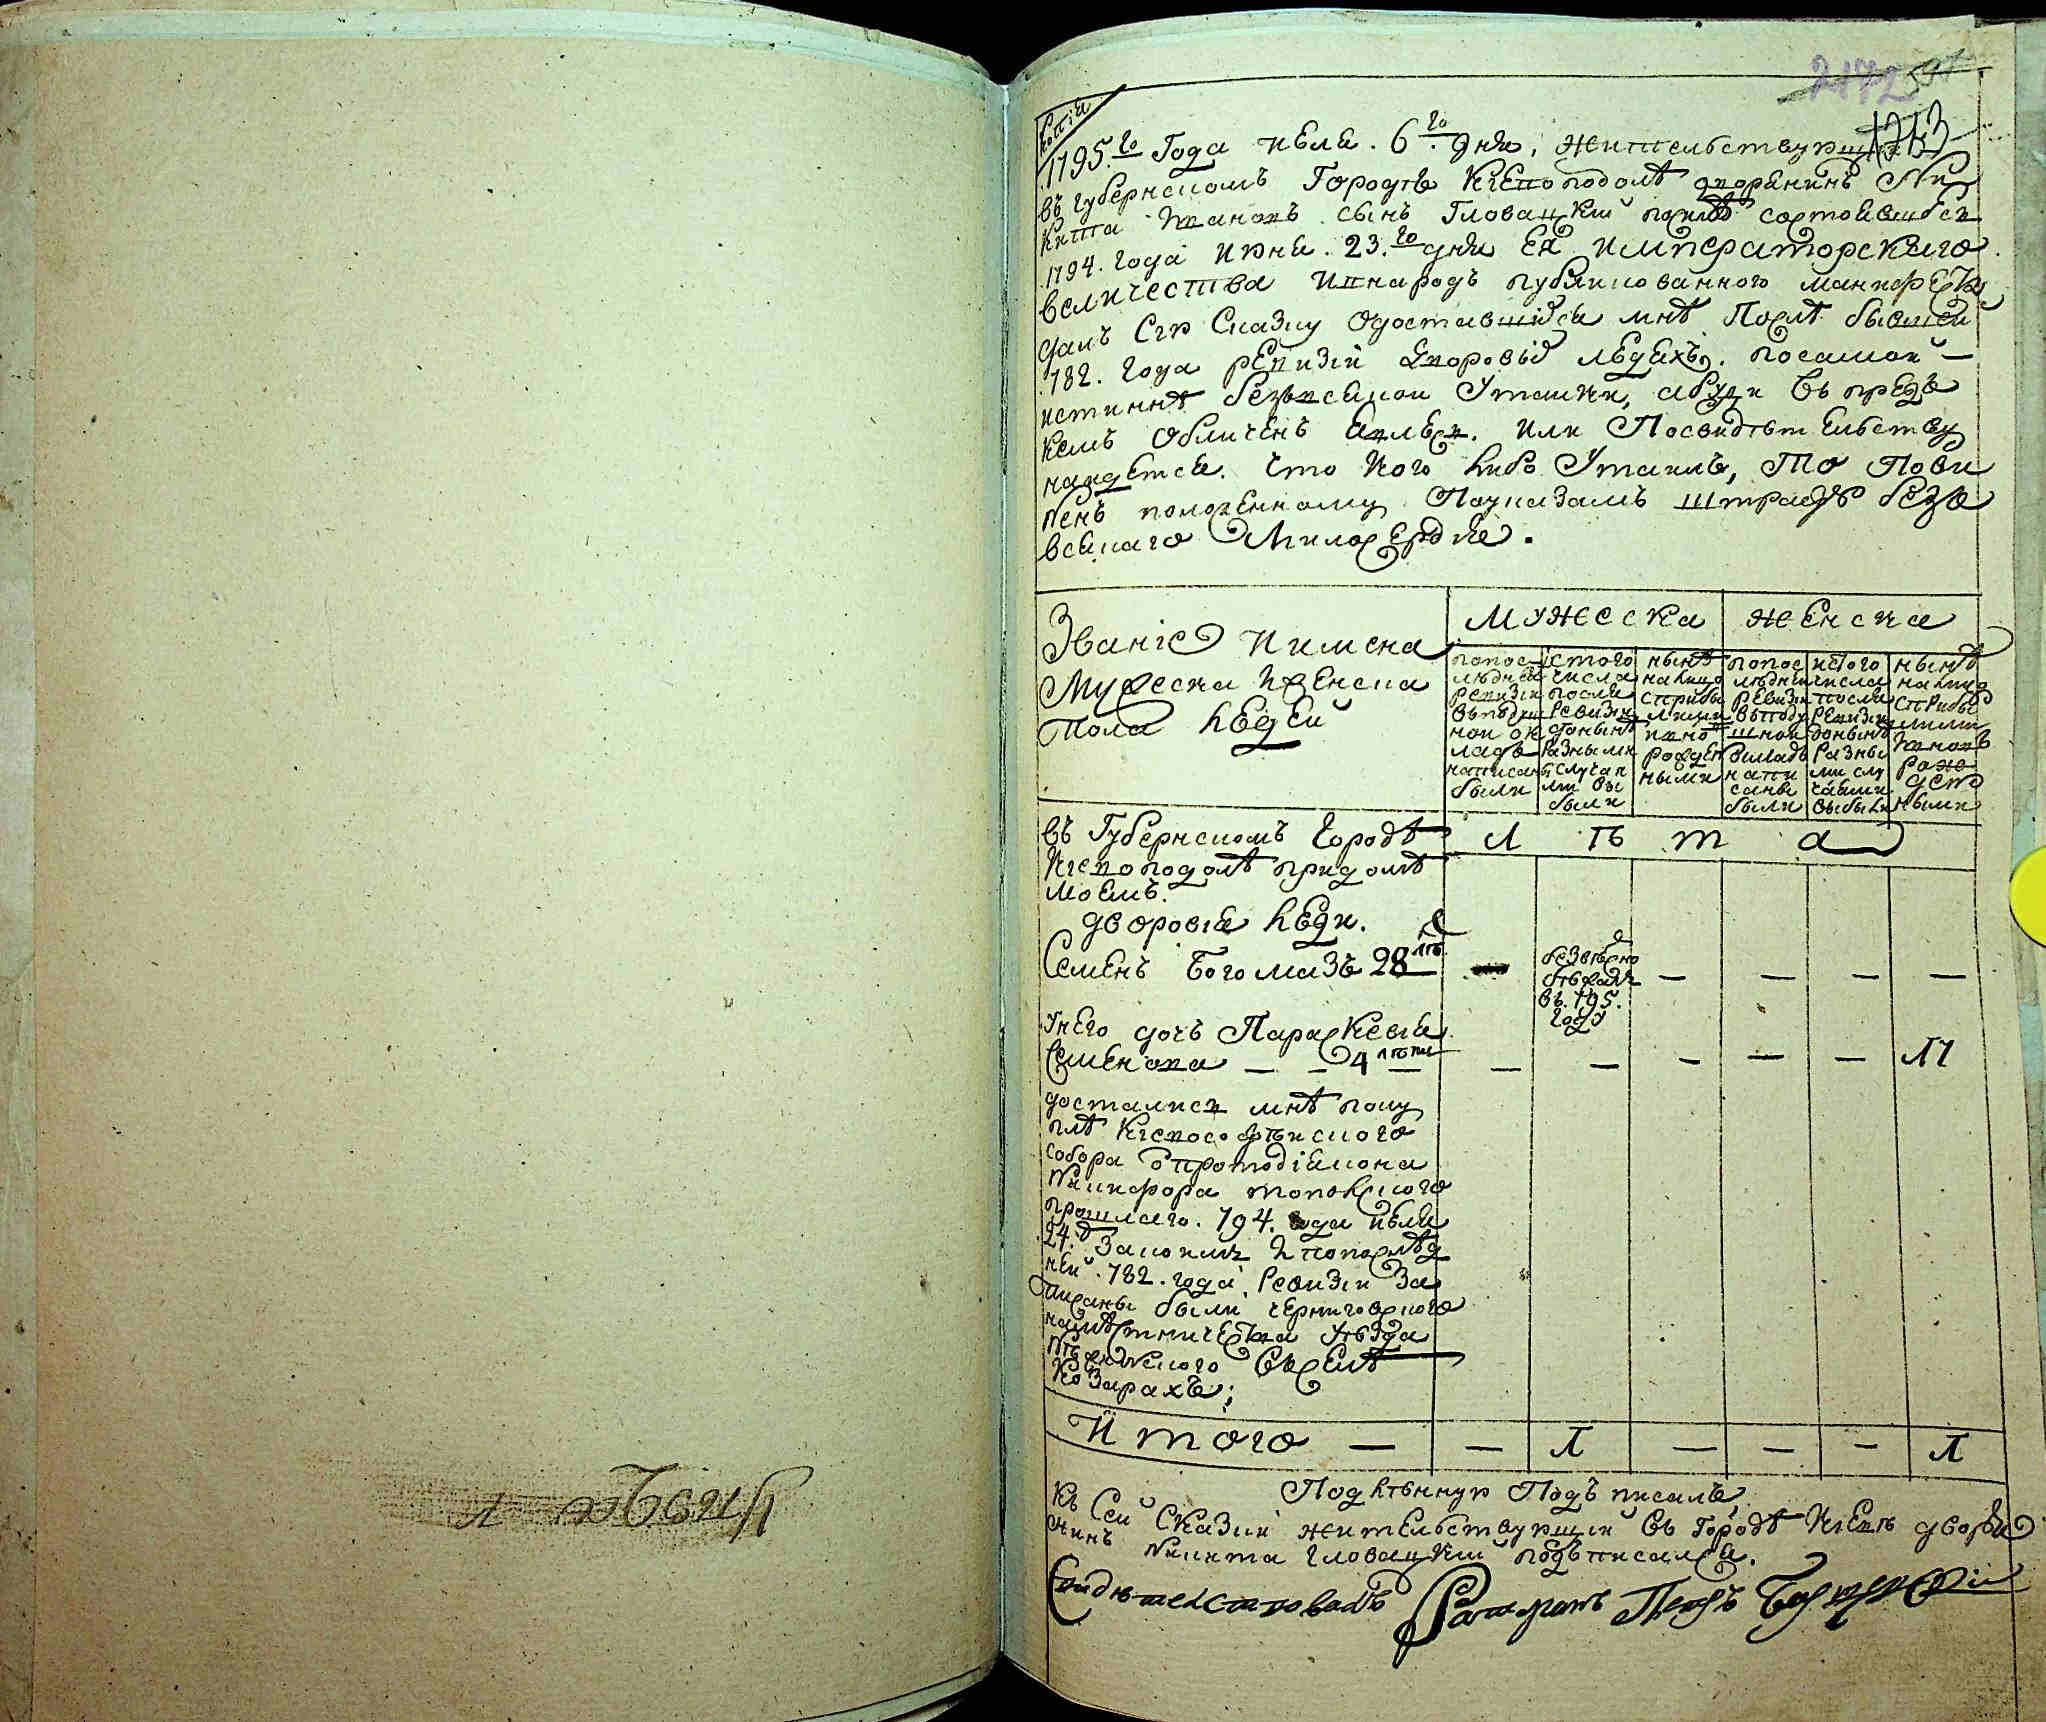 2172 591
1713
Копія
1795.го Года июля. 6го дня, жительствующи
въ губернскомъ Городѣ Кіевоподолѣ дворянинъ Ни
кита Ивановъ сынъ Гловацкій послѣ состоявшися
1794. года июня. 23.го дня Ея императорскаго
величества ивнародъ публикованного манифесту
далъ Сію Сказку Одоставшихся мнѣ Послѣ бывшей
782. года ревизіи Дворовыхъ людехъ. посамой
истиннѣ безвсякой Утайки, абуди въ предь
кемъ Обличенъ явлюся. или Посвидѣтельству
найдется. что кого либо Утаилъ, то пови
ненъ положенному Поуказамъ штрафу безо
всякаго Милосердия.
Званіе иимена
Мужеска иженска
пола людей
Мужеска
женска
попос
лѣдней
ревизіи
въподуш
ной ок
ладъ
написаны
были
истого
числа
после
ревизіи
донынѣ
разными
случая
ми вы
были
нынѣ
налицо
сприбы
лыми
ивно
рожден
ными
попос
лѣдней
ревизіи
въподу
шной
окладъ
напи
саны
были
истого
числа
после
ревизіи
донынѣ
разны
ми слу
чаями
выбыли
нынѣ
налицо
сприбы
лыми
ивновь
рож
ден
ными
въ Губернскомъ городѣ
Кіевоподолѣ придомѣ
моемъ.
лѣта
дворовіе люди.
Семенъ Богомазъ 28 лѣ — безвѣсно
бѣжалъ
въ. 795.
году — — — —
Унего дочъ Параскевія
Семенова — - 4 лѣтъ — — — — — — 1
досталися мнѣ поку
пкѣ Кіевософѣйского
собора Опротодіякона
Никифора
прошлаго. 794. года июля
24.го Закономъ ипопослѣд
ней. 782. года Ревизіи За
писаны были черниговского
намѣстничества Уѣзда
Нѣжинского Вселѣ
Козарахъ;
Итого — — 1 — — — 1
Подлѣнную Подъписалъ
Къ Сей Сказки жительствующий въ Городѣ Кіевѣ дворя
нинъ Никита Гловацкий подъписался.
Свидѣтельствовалъ Ратманъ Петръ